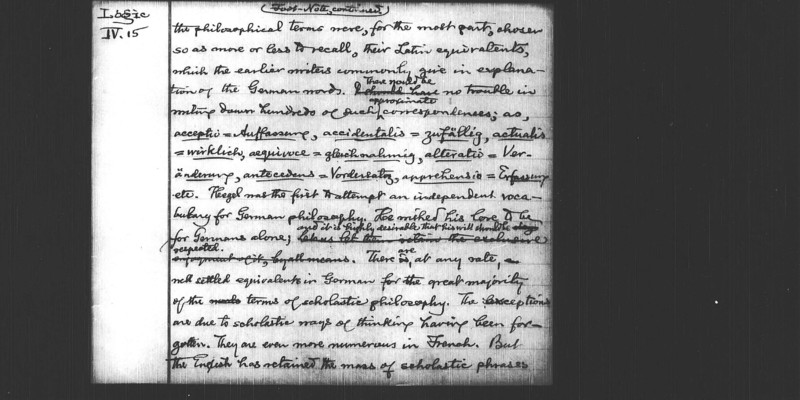 Logic
IV. 15
(Foot-Note, continued)
the philosophical terms were, for the most part, chosen
so as more or less to recall, their Latin equivalents,
which the earlier writers commonly give in explana-
tion of the German words. I should have there would be no trouble in
writing down hundreds of such approximate correspondences; as,
acceptio = Auffassung, accidentalis = zufällig, actualis
= wirklich, aequivoce = gleichnahmig, alteratio = Ver-
änderung, antecedens = Vordersatz, apprehensio = Erfassung
etc. Hegel was the first to attempt an independent voca-
bulary for German philosophy. He wished his lore to be
for Germans alone; and it is highly desirable that his will should be
let them retain the exclusive
respected.
enjoyment of it, by all means. There are, at any rate,
well settled equivalents in German for the great majority
of the terms of scholastic philosophy. The exceptions
are due to scholastic ways of thinking having been for-
gotten. They are even more numerous in French. But
the English has retained the mass of scholastic phrases